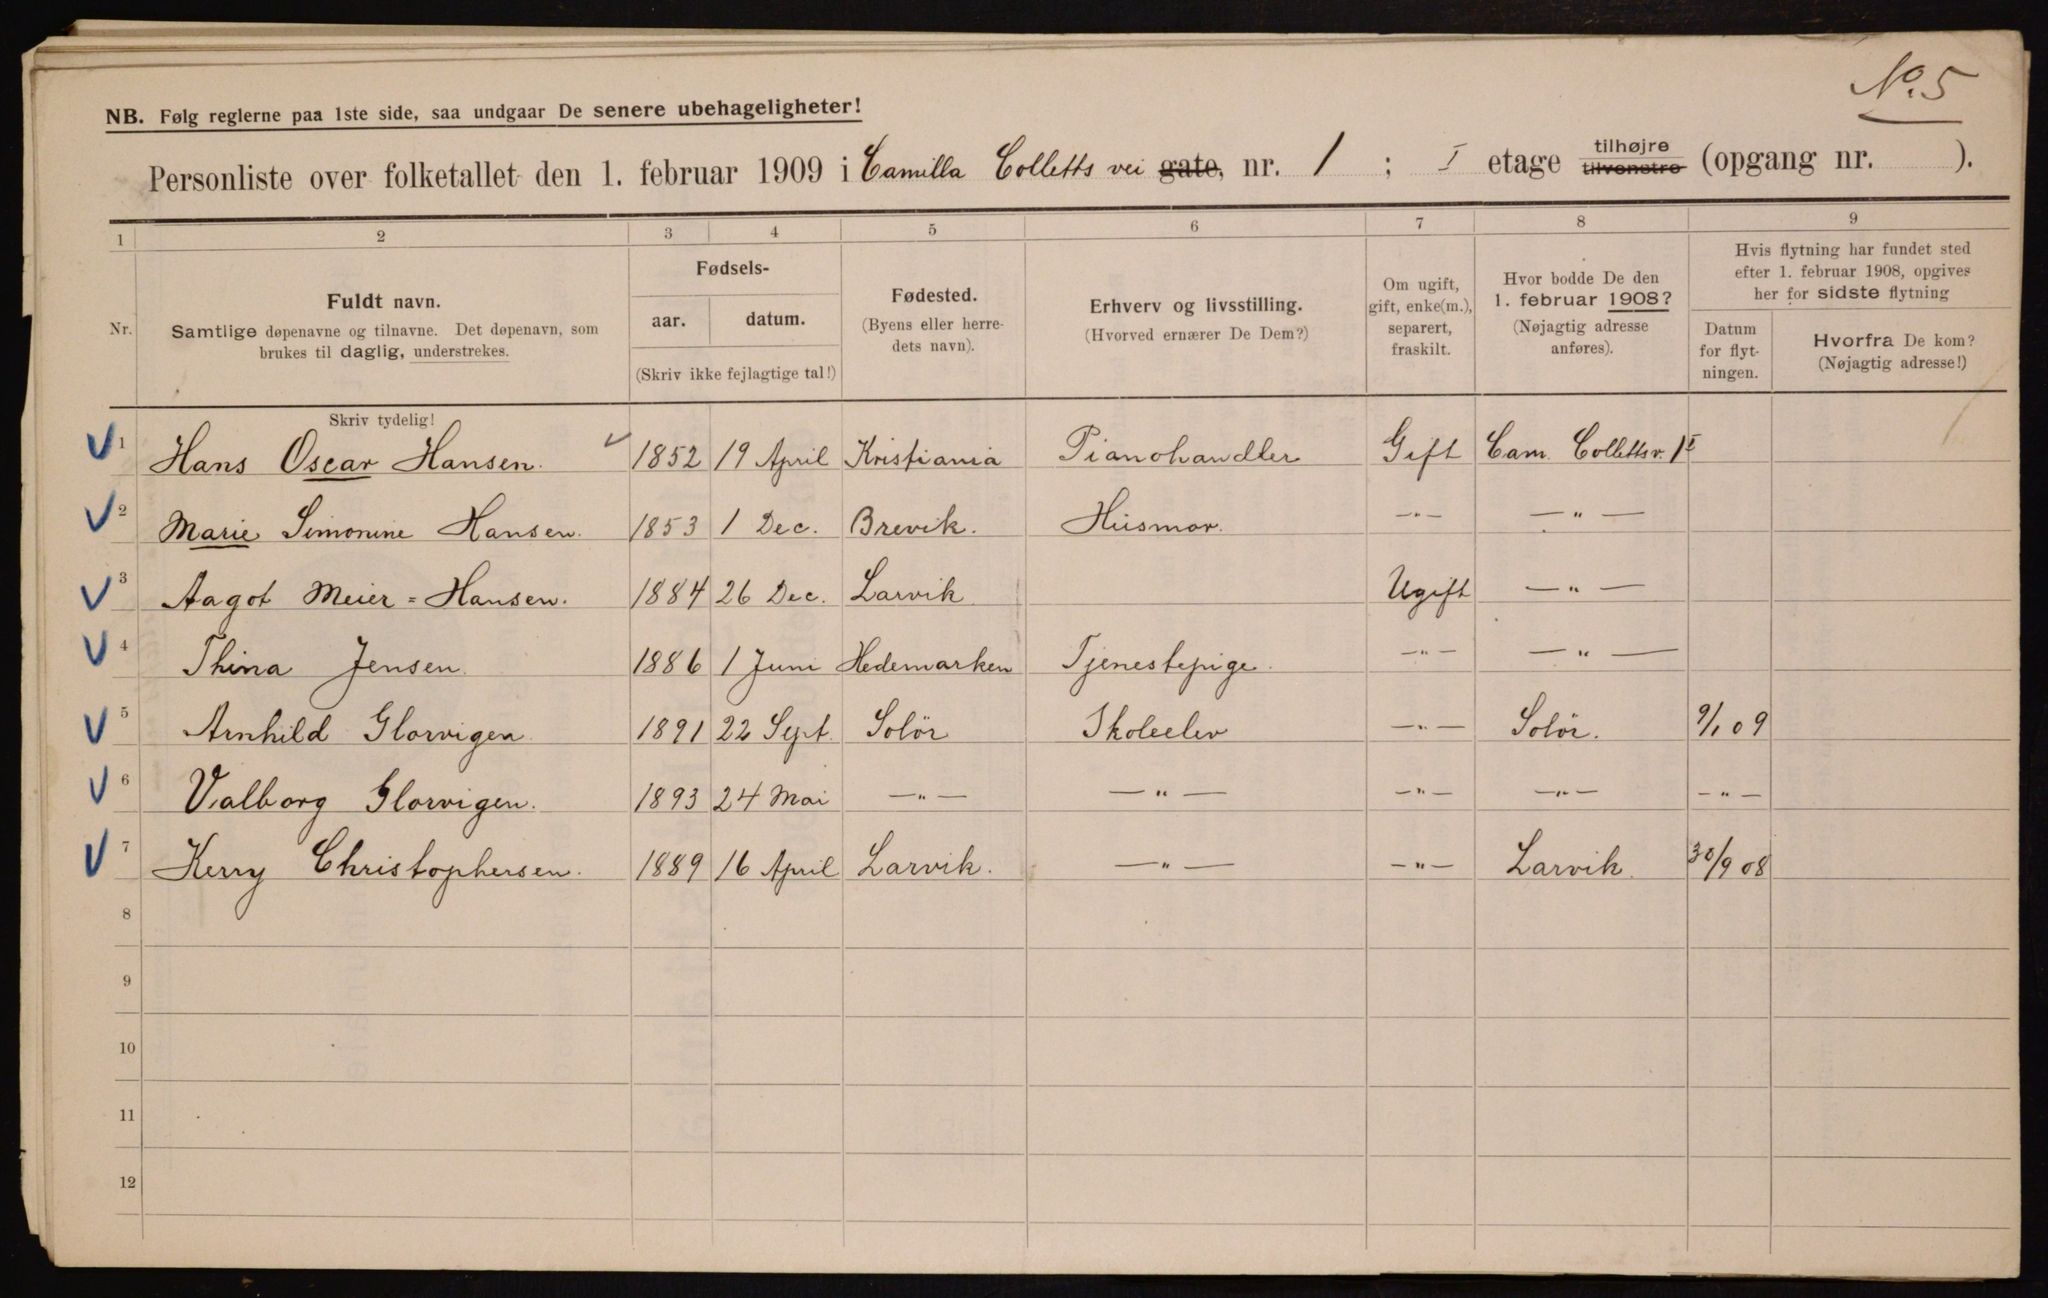 No. 5
NB. Følg reglerne paa 1ste side, saa undgaar De senere ubehageligheter!
Personliste over folketallet den 1. februar 1909 i Camilla Colletts vei gate, nr. 1 ; I etage tilhøjre tilvenstre (opgang nr. ).
1 2 3 4 5 6 7 8 9
Nr.
Fuldt navn.
Samtlige døpenavne og tilnavne. Det døpenavn, som
brukes til daglig, understrekes.
Fødsels-
aar. datum.
(Skriv ikke fejlagtige tal!)
Fødested.
(Byens eller herre-
dets navn).
Erhverv og livsstilling.
(Hvorved ernærer De Dem?)
Om ugift,
gift, enke(m.),
separert,
fraskilt.
Hvor bodde De den
1. februar 1908?
(Nøjagtig adresse
anføres).
Hvis flytning har fundet sted
efter 1. februar 1908, opgives
her for sidste flytning
Datum
for flyt-
ningen.
Hvorfra De kom?
(Nøjagtig adresse!)
Skriv tydelig!
1 Hans Oscar Hansen. 1852 19 April Kristiania Pianohandler Gift Cam. Collettsv. 1 I
2 Marie Simonine Hansen. 1853 1 Dec. Brevik. Husmor. —"— —"—
3 Aagot Meier=Hansen. 1884 26 Dec. Larvik Ugift —"—
4 Thina Jensen. 1886 1 Juni Hedemarken Tjenestepige. —"— —"—
5 Arnhild Glorvigen. 1891 22 Sept. Solör Skoleelev —"— Solör. 9/1 09
6 Valborg Glorvigen. 1893 24 Mai —"— —"— —"— —"— —"—
7 Kerry Christophersen. 1889 16 April Larvik. —"— —"— Larvik. 30/9 08
8
9
10
11
12